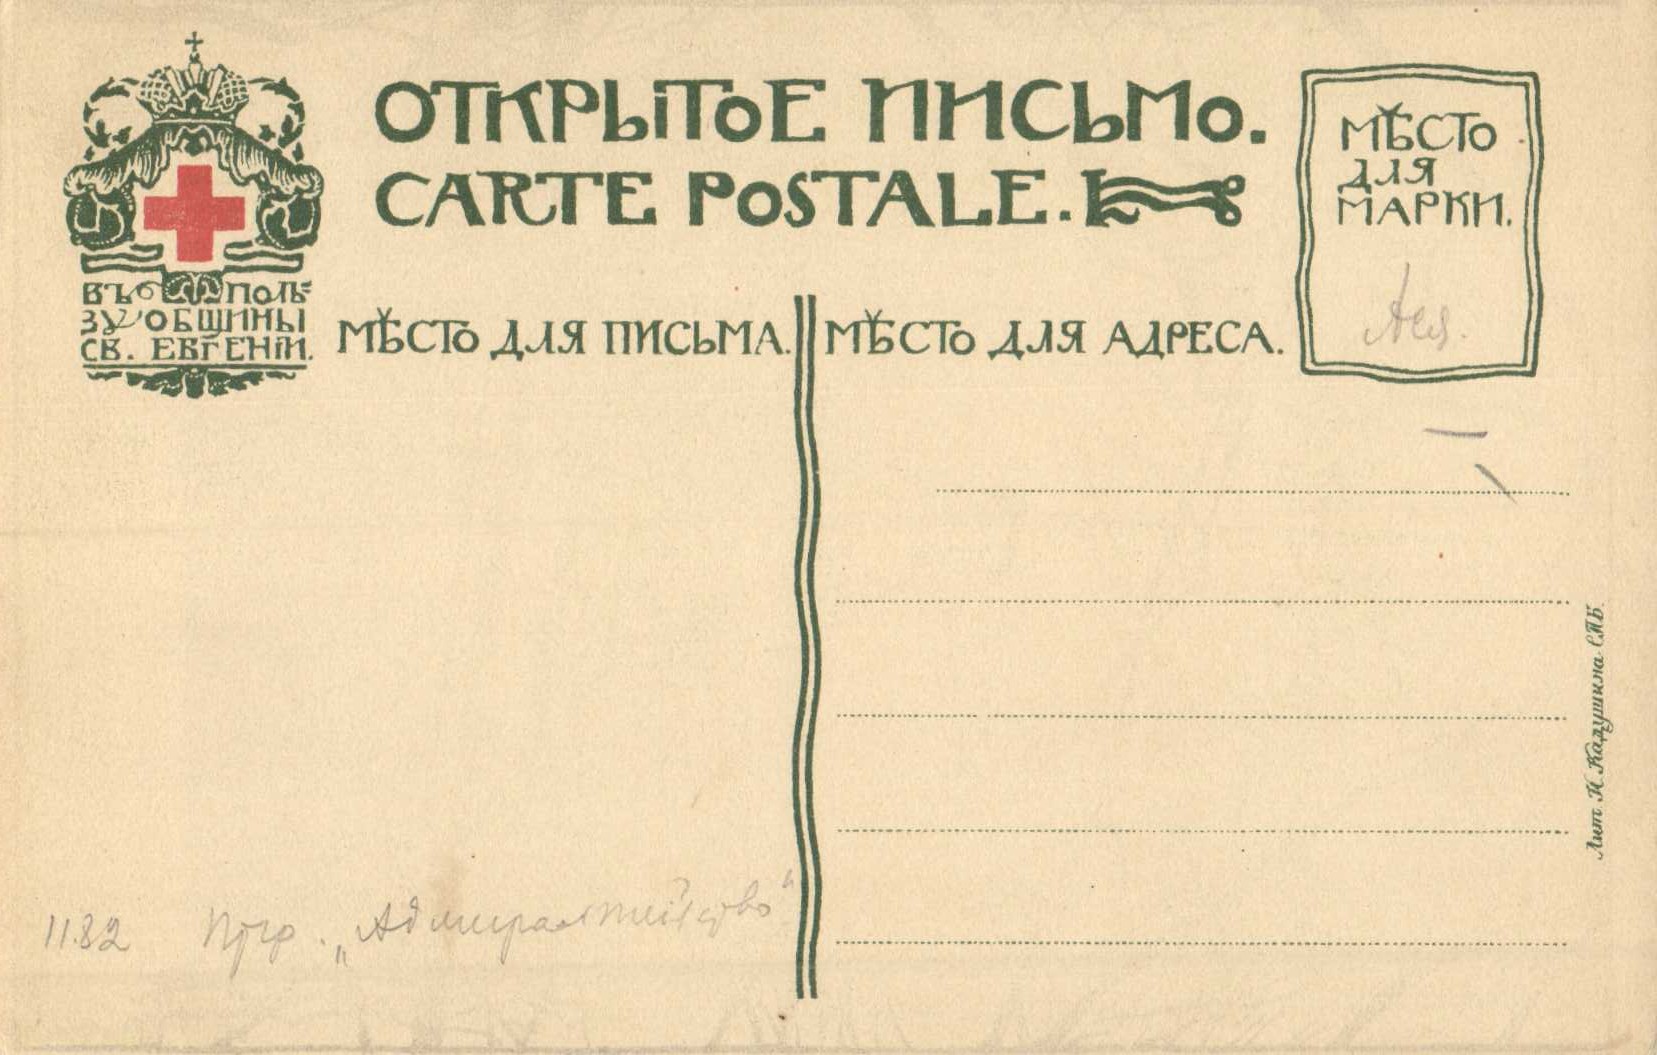 ОТКРЫТОЕ ПИСЬМО.
CARTE POSTALE.
ВЪ ПОЛЬ=
ЗУ ОБЩИНЫ
СВ. ЕВГЕНІИ.
МѢСТО
ДЛЯ
МАРКИ.
МѢСТО ДЛЯ ПИСЬМА.
МѢСТО ДЛЯ АДРЕСА.
Лит. Н. Кадушина. СПБ.
1182 „Адмиралтейство“